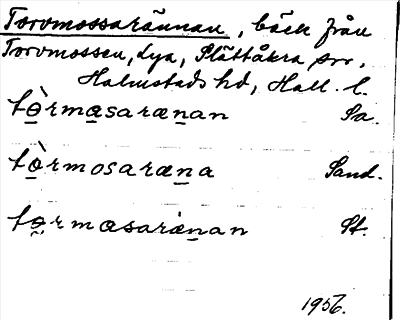 Torvmossarännan, bäck från
Torvmossen, dya, Slättåkra sn.
Halmstads hd, Hall. l.
tòrmasarænan Sa.
tòrmosaræna Sand.
tormasarænan St.
1956.